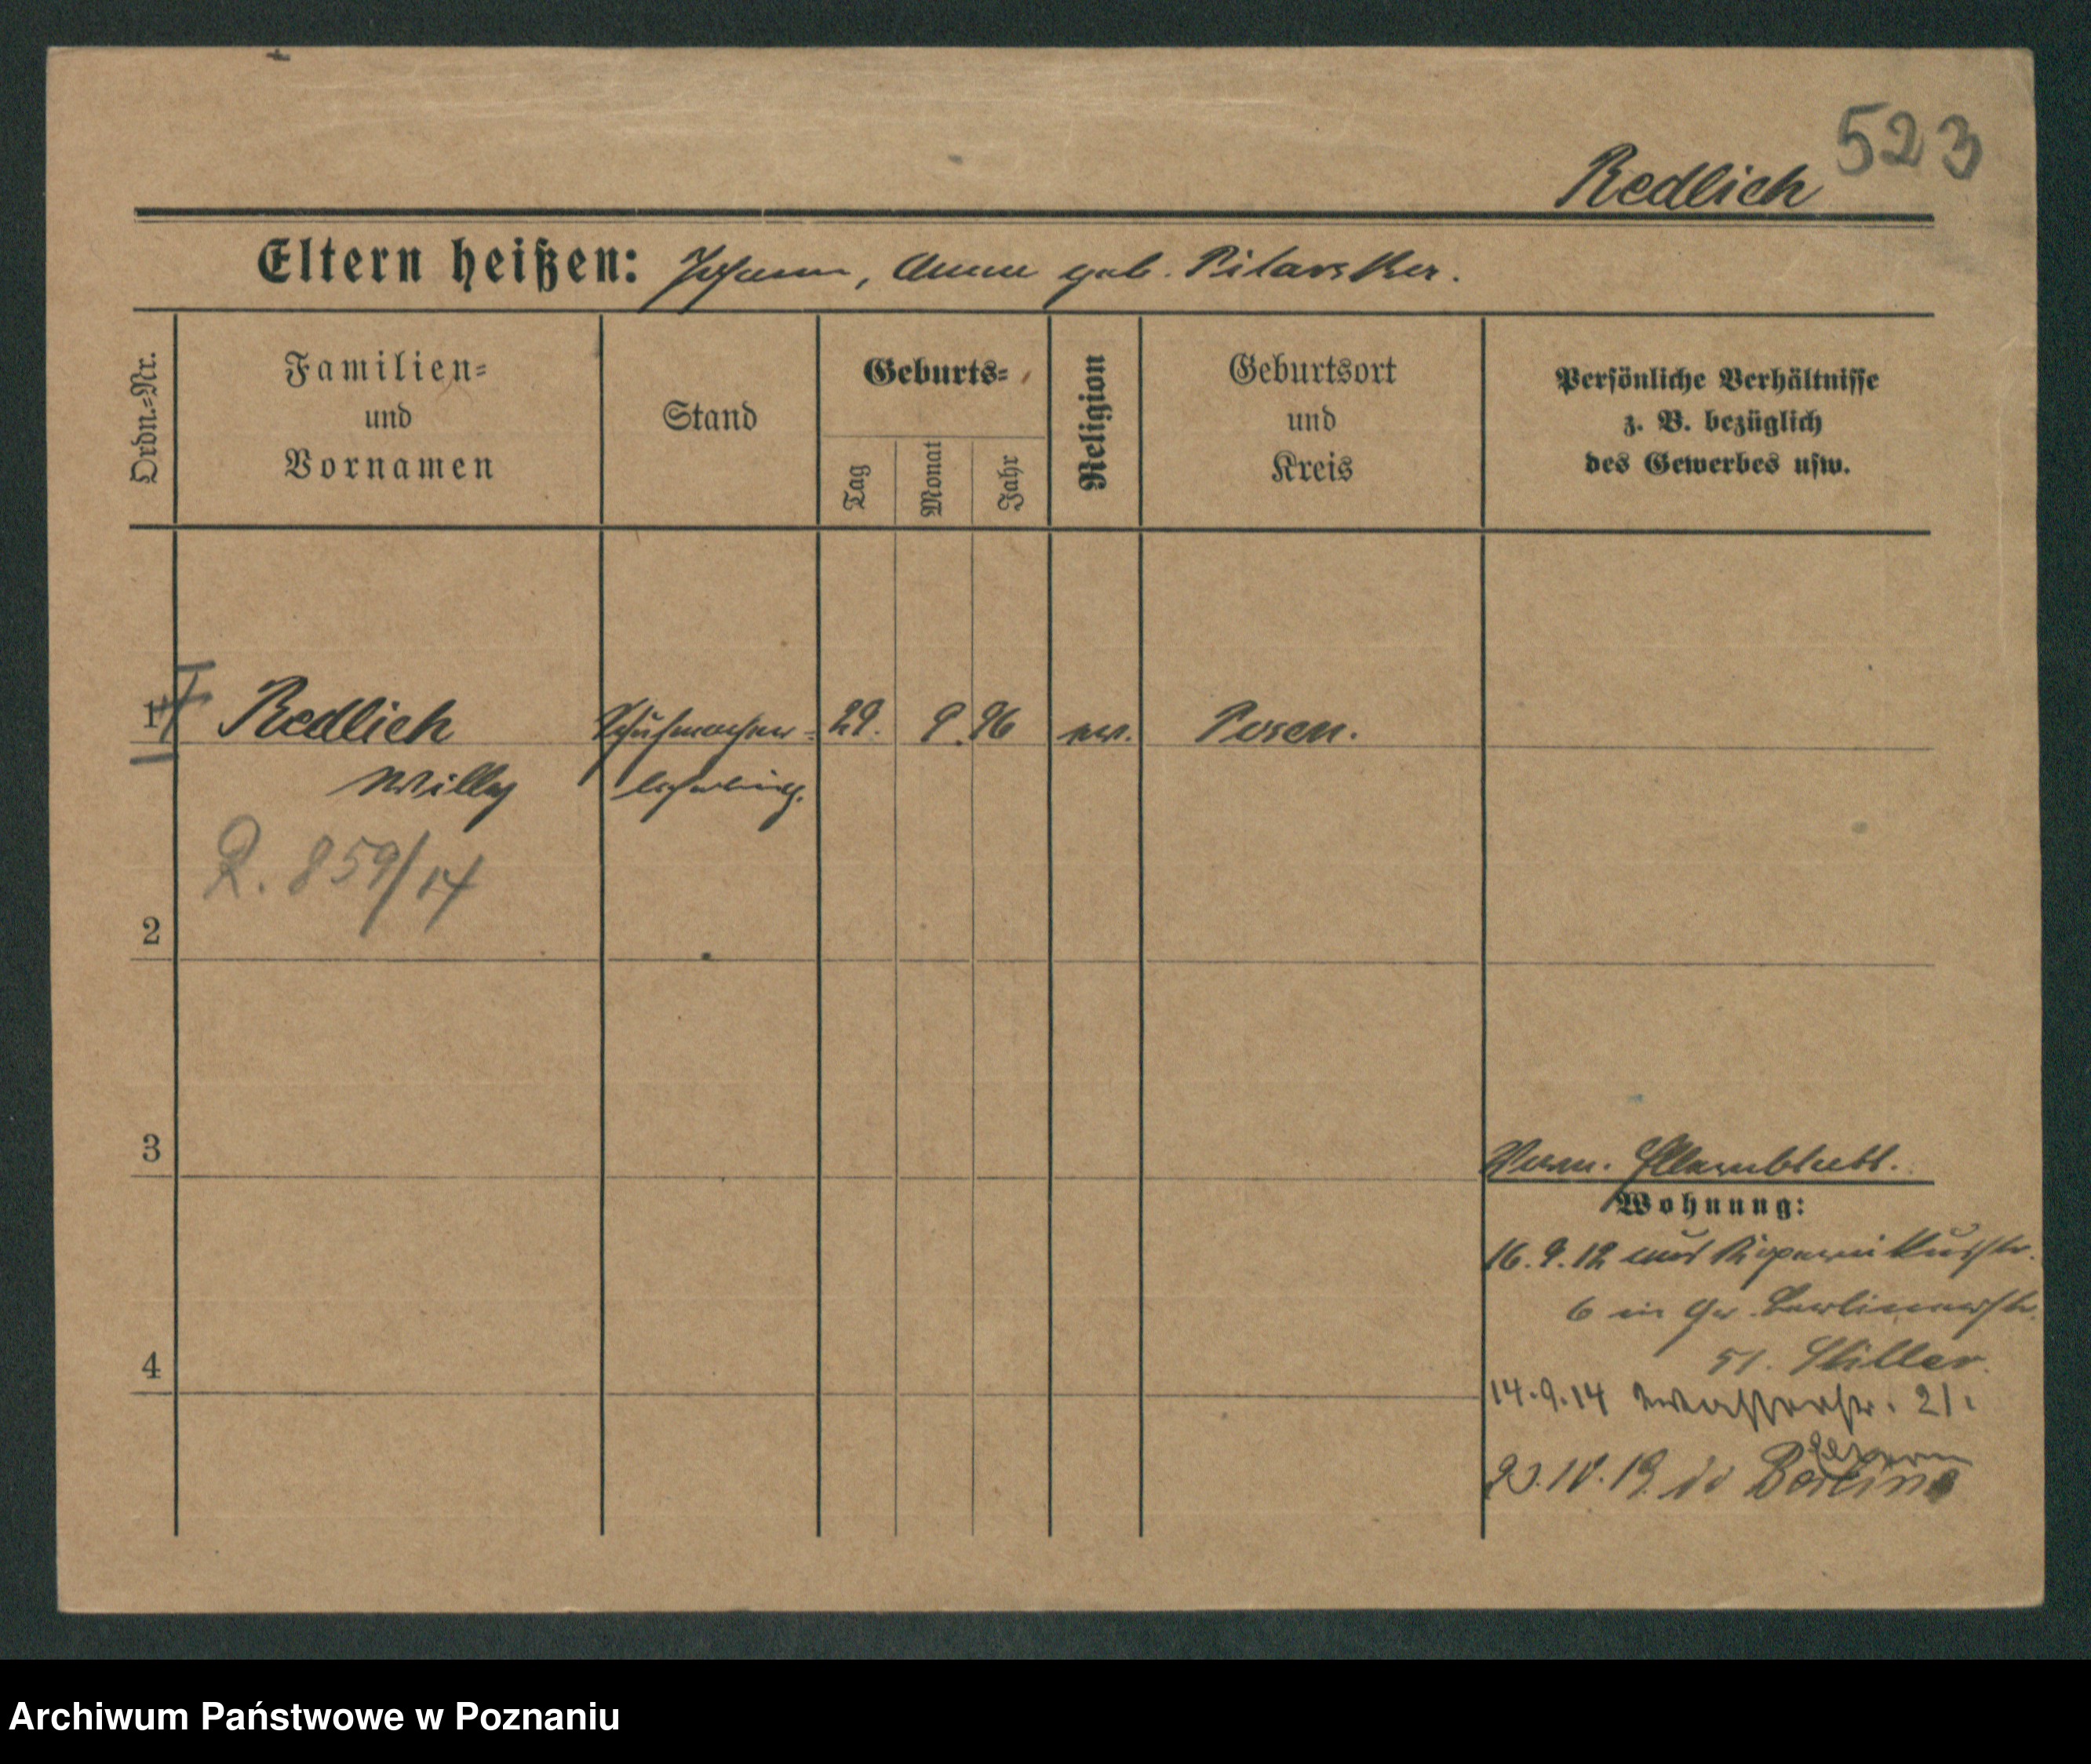 523
Redlich
Eltern heißen: Johann, Anna geb. Pilarska.
Ordn.=Nr.
Familien=
und
Vornamen
Stand
Geburts=
Tag
Monat
Jahr
Religion
Geburtsort
und
Kreis
Persönliche Verhältnisse
z. B. bezüglich
des Gewerbes usw.
1 Redlich Schuhmacher= 29. 9. 96 ev. Posen.
Willy lehrling.
R. 859/14
2
3
Wohnung:
16. 9. 12 aus Kopernikusstr.
6 in Gr. Berlinerstr.
51. Stiller.
4
14.9.14 Wasserstr. 21.
Berlin
Archiwum Państwowe w Poznaniu